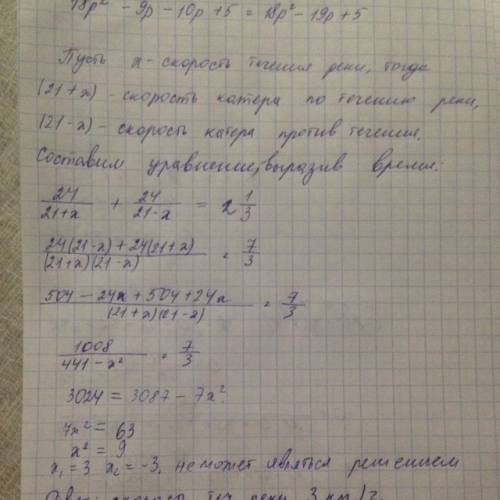 18p² - 9p - 10p + 5 = 18p² - 19p + 5
Пусть x - скорость течения реки, тогда
(21+x) - скорость катера по течению реки,
(21-x) - скорость катера против течения.
Составим уравнение, выразив время:
24/(21+x) + 24/(21-x) = 2 1/3
(24(21-x) + 24(21+x))/((21+x)(21-x)) = 7/3
(504 - 24x + 504 + 24x)/((21+x)(21-x)) = 7/3
1008/(441 - x²) = 7/3
3024 = 3087 - 7x²
7x² = 63
x² = 9
x₁ = 3 x₂ = -3, не может являться решением
Ответ: скорость теч. реки 3 км/ч.